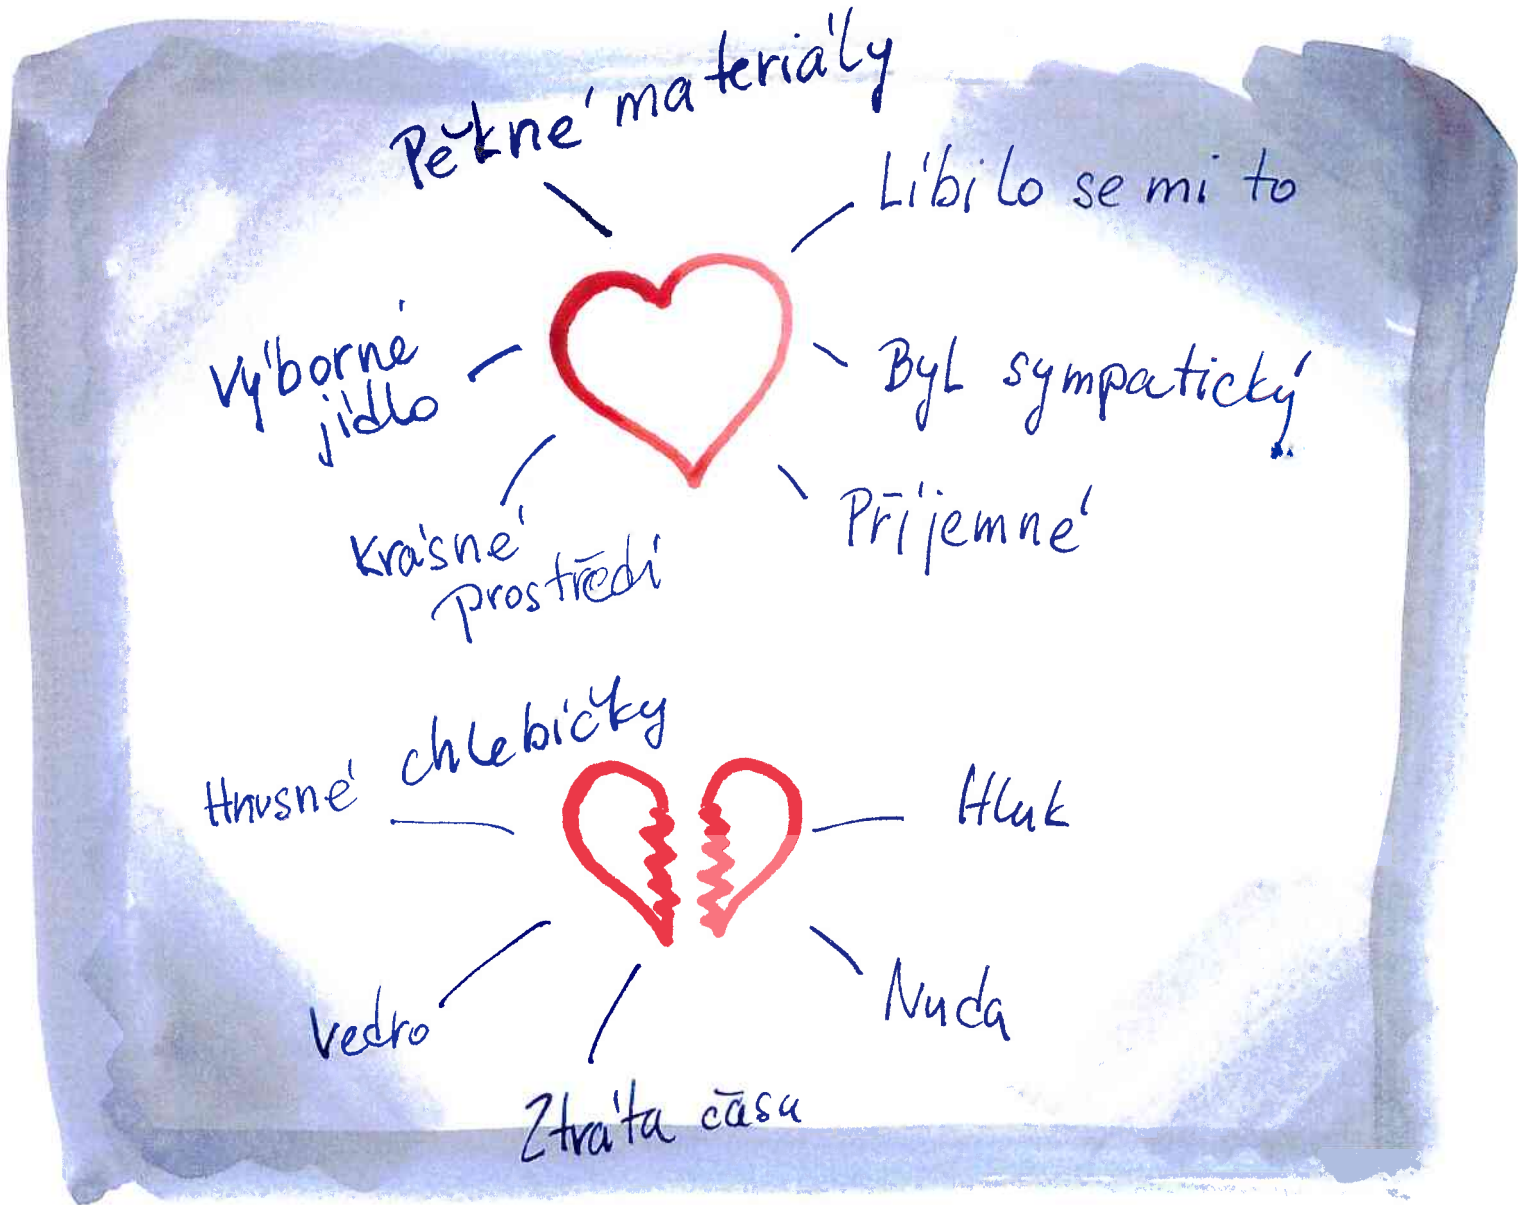 Pěkné materiály
Líbilo se mi to
Výborné
jídlo
Byl sympatický
Krásné
prostředí
Příjemné
Hnusné chlebíčky
Hluk
Vedro
Nuda
Ztráta času